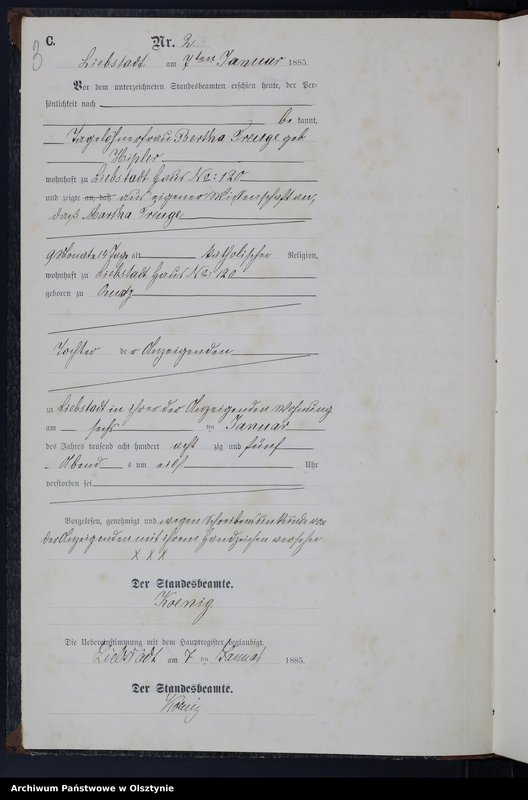 3
C. Nr. 2
Liebstadt am 7ten Januar 1885.
Vor dem unterzeichneten Standesbeamten erschien heute, der Per-
sönlichkeit nach
be kannt,
Tagelöhnerfrau Bertha Preuge geb
Hipler
wohnhaft zu Liebstadt Haus No: 120
und zeigte an, daß aus eigener Wissenschaft an,
daß Martha Preuge
9 Monate 14 Tage alt katholischer Religion,
wohnhaft zu Liebstadt Haus No: 120
geboren zu
Tochter der Anzeigenden
zu Liebstadt in ihrer der Anzeigenden Wohnung
am sechs ten Januar
des Jahres tausend acht hundert acht zig und fünf
Abend s um elf Uhr
verstorben sei
Vorgelesen, genehmigt und wegen Schreibensunkunde von
der Anzeigenden mit ihrem Handzeichen versehn
x x x
Der Standesbeamte.
Koenig
Die Uebereinstimmung mit dem Hauptregister beglaubigt.
Liebstadt am 7 ten Januar 1885.
Der Standesbeamte.
Koenig
Archiwum Państwowe w Olsztynie